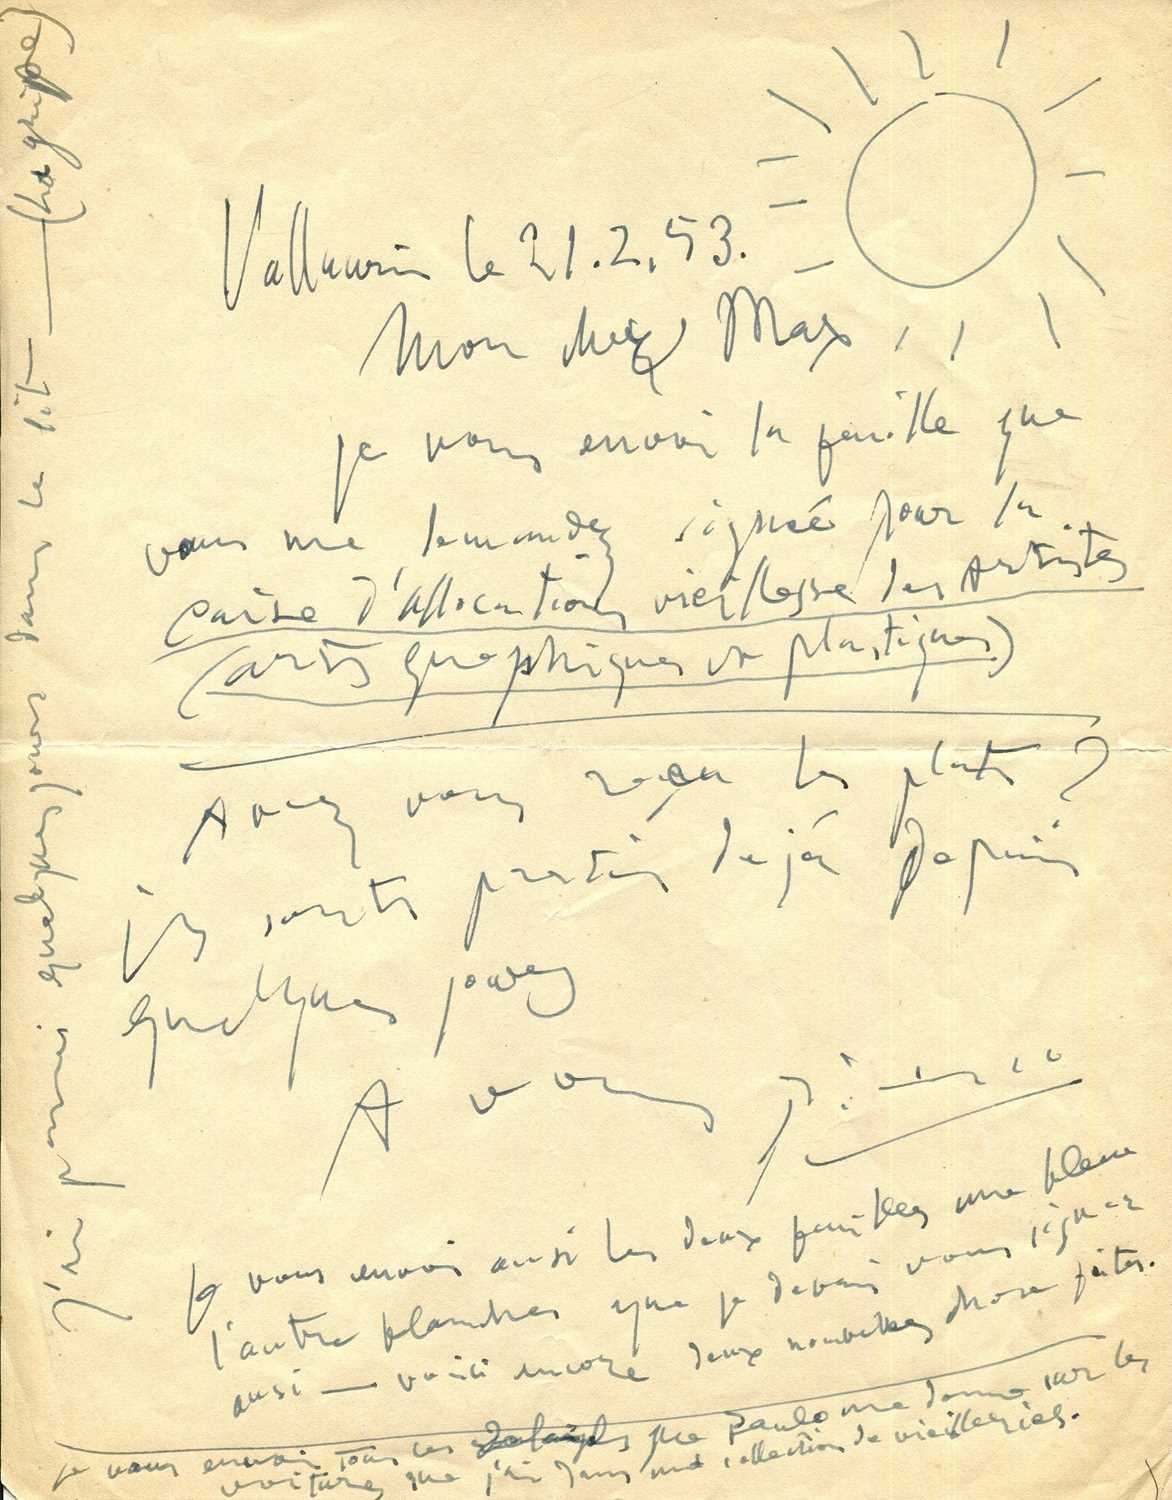 Vallauris le 21.2.53.
Mon cher Max
je vous envoi la feuille que
vous me demandez signée pour la
caise d'allocations vieillesse des Artistes
(arts graphiques et plastiques)
Avez vous reçu les plats?
ils sonts partis dejá depuis
quelques jours
A vous Picasso
je vous envois ausi les deux feuilles une bleue
l'autre blanches que je devais vous signer
ausi — voici encore deux nouvelles chose faites.
je vous envoi tous ces que Paulo me donne sur les
voitures que j'ai dans ma collection de vieilleries.
j'ai passé quelques jours dans le lit — (la grippe)